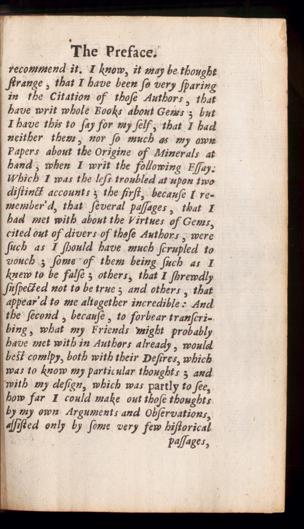 The Preface.
recommend it. I know, it may be thought
ſtrange, that I have been ſo very ſparing
in the Citation of thoſe Authors, that
have writ whole Books about Gems; but
I have this to ſay for my ſelf, that I had
neither them, nor ſo much as my own
Papers about the Origine of Minerals at
hand, when I writ the following Eſſay.
Which I was the leſs troubled at upon two
diſtinct accounts; the firſt, becauſe I re-
member'd, that ſeveral paſſages, that I
had met with about the Virtues of Gems,
cited out of divers of theſe Authors, were
ſuch as I ſhould have much ſcrupled to
vouch; ſome of them being ſuch as I
knew to be falſe; others, that I ſhrewdly
ſuſpected not to be true; and others, that
appear'd to me altogether incredible: And
the ſecond, becauſe, to forbear tranſcri-
bing, what my Friends might probably
have met with in Authors already, would
beſt comlpy, both with their Deſires, which
was to know my particular thoughts; and
with my deſign, which was partly to ſee,
how far I could make out thoſe thoughts
by my own Arguments and Obſervations,
aſſiſted only by ſome very few hiſtorical
paſſages,